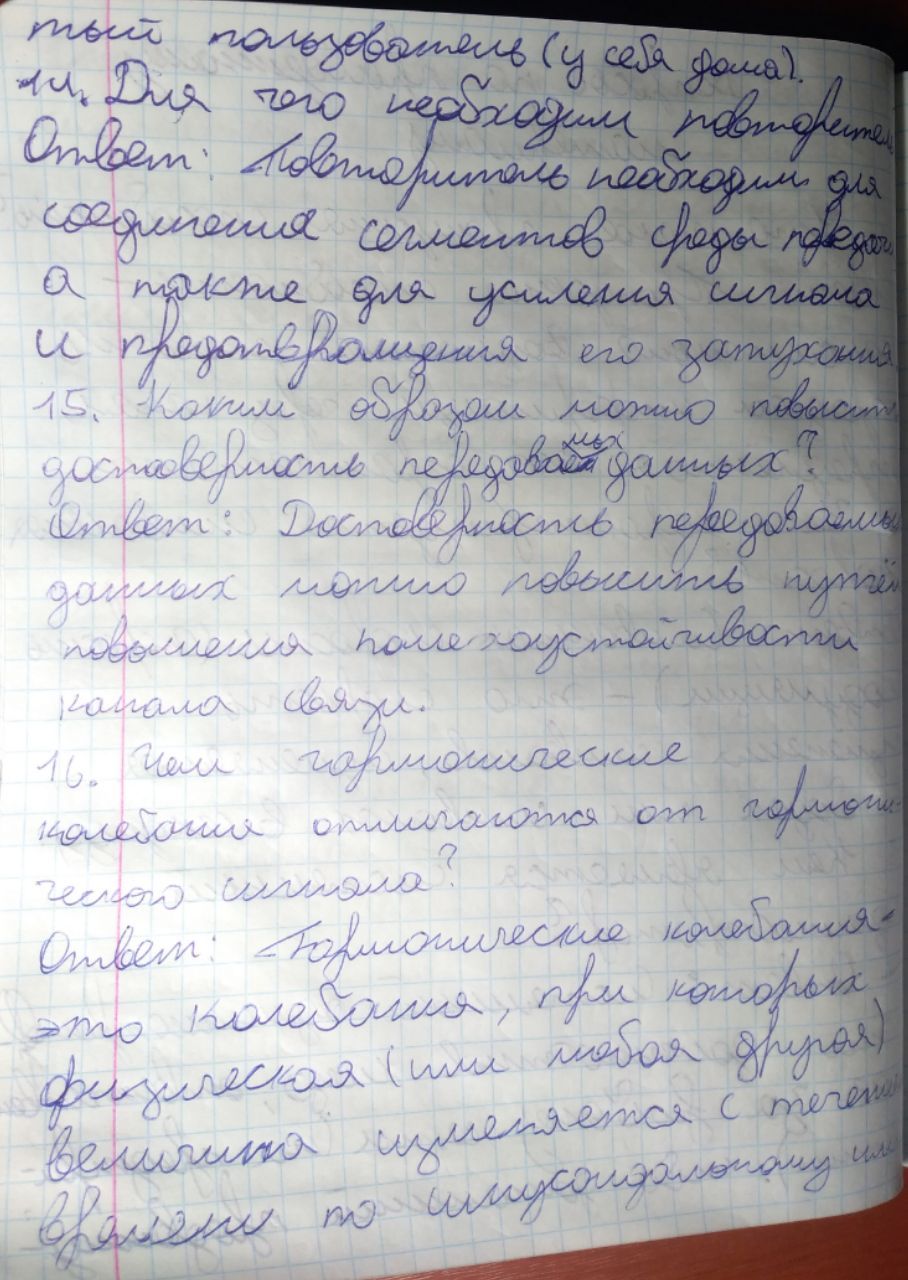 тый пользователь (у себя дома).
14. Для чего необходим повторитель
Ответ: Повторитель необходим для
соединения сегментов среды передачи
а также для усиления сигнала
и предотвращения его затухания
15. Каким образом можно повысить
достоверность передаваемых данных?
Ответ: Достоверность передаваемых
данных можно повысить путём
повышения помехоустойчивости
канала связи.
16. Чем гармонические
колебания отличаются от гармони-
ческого сигнала?
Ответ: Гармонические колебания-
это колебания, при которых
физическая (или любая другая)
величина изменяется с течением
времени по синусоидальному или